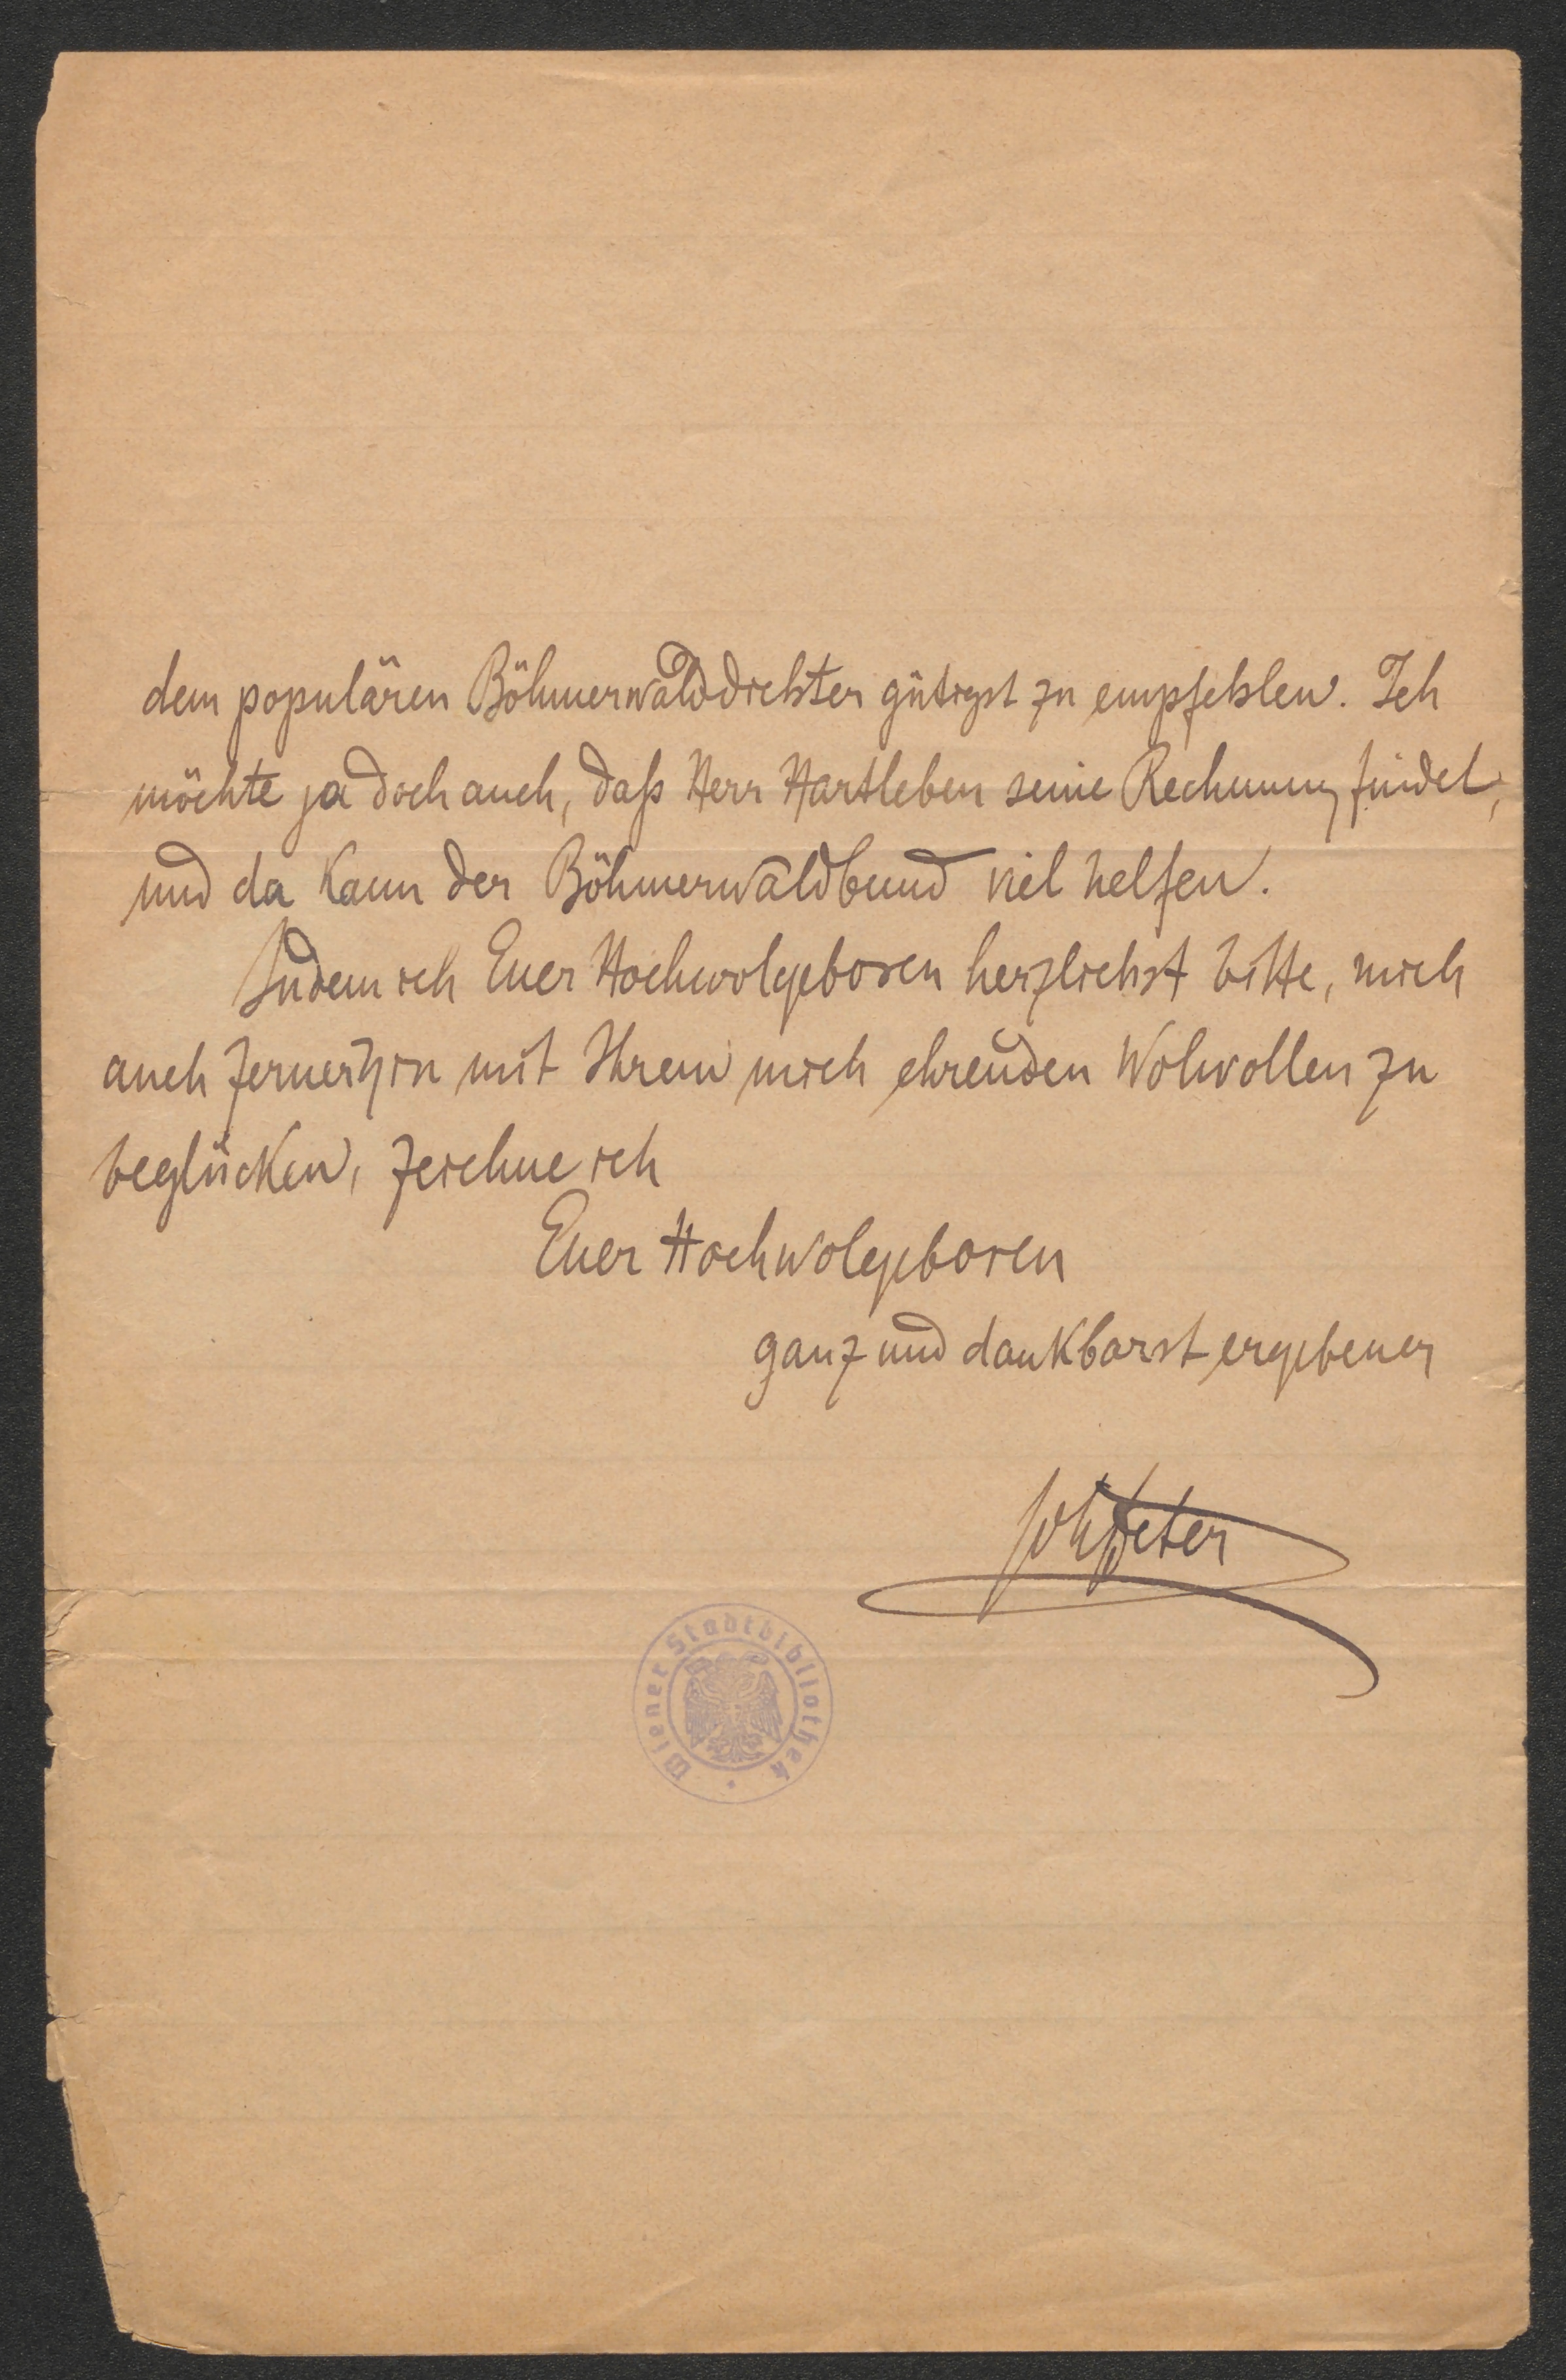 dem populären Böhmerwalddichter gütigst zu empfehlen. Ich
möchte ja doch auch, daß Herr Hartleben seine Rechnung findet,
und da kann der Böhmerwaldbund viel helfen.
Indem ich Euer Hochwolgeboren herzlichst bitte, mich
auch fernerhin mit Ihrem mich ehrenden Wolwollen zu
beglücken, zeichne ich
Euer Hochwolgeboren
ganz und dankbarst ergebener
JohPeter
Wiener Stadtbibliothek